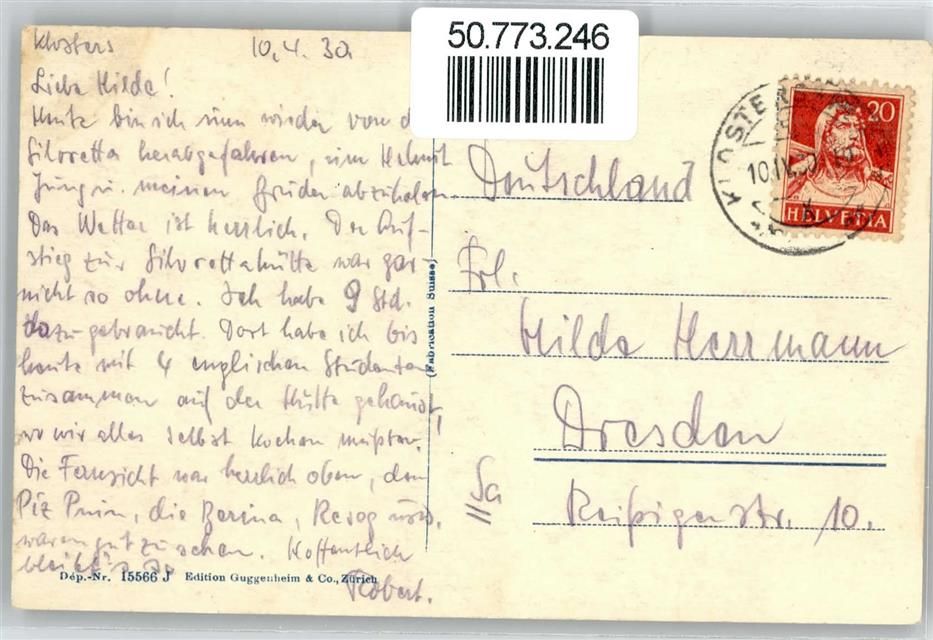 50.773.246
Klosters 10.4.30
Liebe Hilde!
Heute bin ich nun wieder von d
Silvretta herabgefahren, um Helmut
Jung u. meinen Bruder abzuholen.
Das Wetter ist herrlich. Der Auf-
stieg zur Silvrettahütte war gar
nicht so ohne. Ich habe 9 Std.
dazu gebraucht. Dort habe ich bis
heute mit 4 englischen Studenten
zusammen auf der Hütte gehaust,
wo wir alles selbst kochen mußten!
Die Fernsicht war herrlich oben, den
Piz Buin, die Bernina, Roseg usw.
waren gut zu sehen. Hoffentlich
bleibt's so
Robert.
Dép.-Nr. 15566 J Edition Guggenheim & Co., Zürich
(Fabrication Suisse)
KLOSTERS
10.IV.30
20
HELVETIA
Deutschland
Frl.
Hilde Herrmann
Dresden
Reißigerstr. 10.